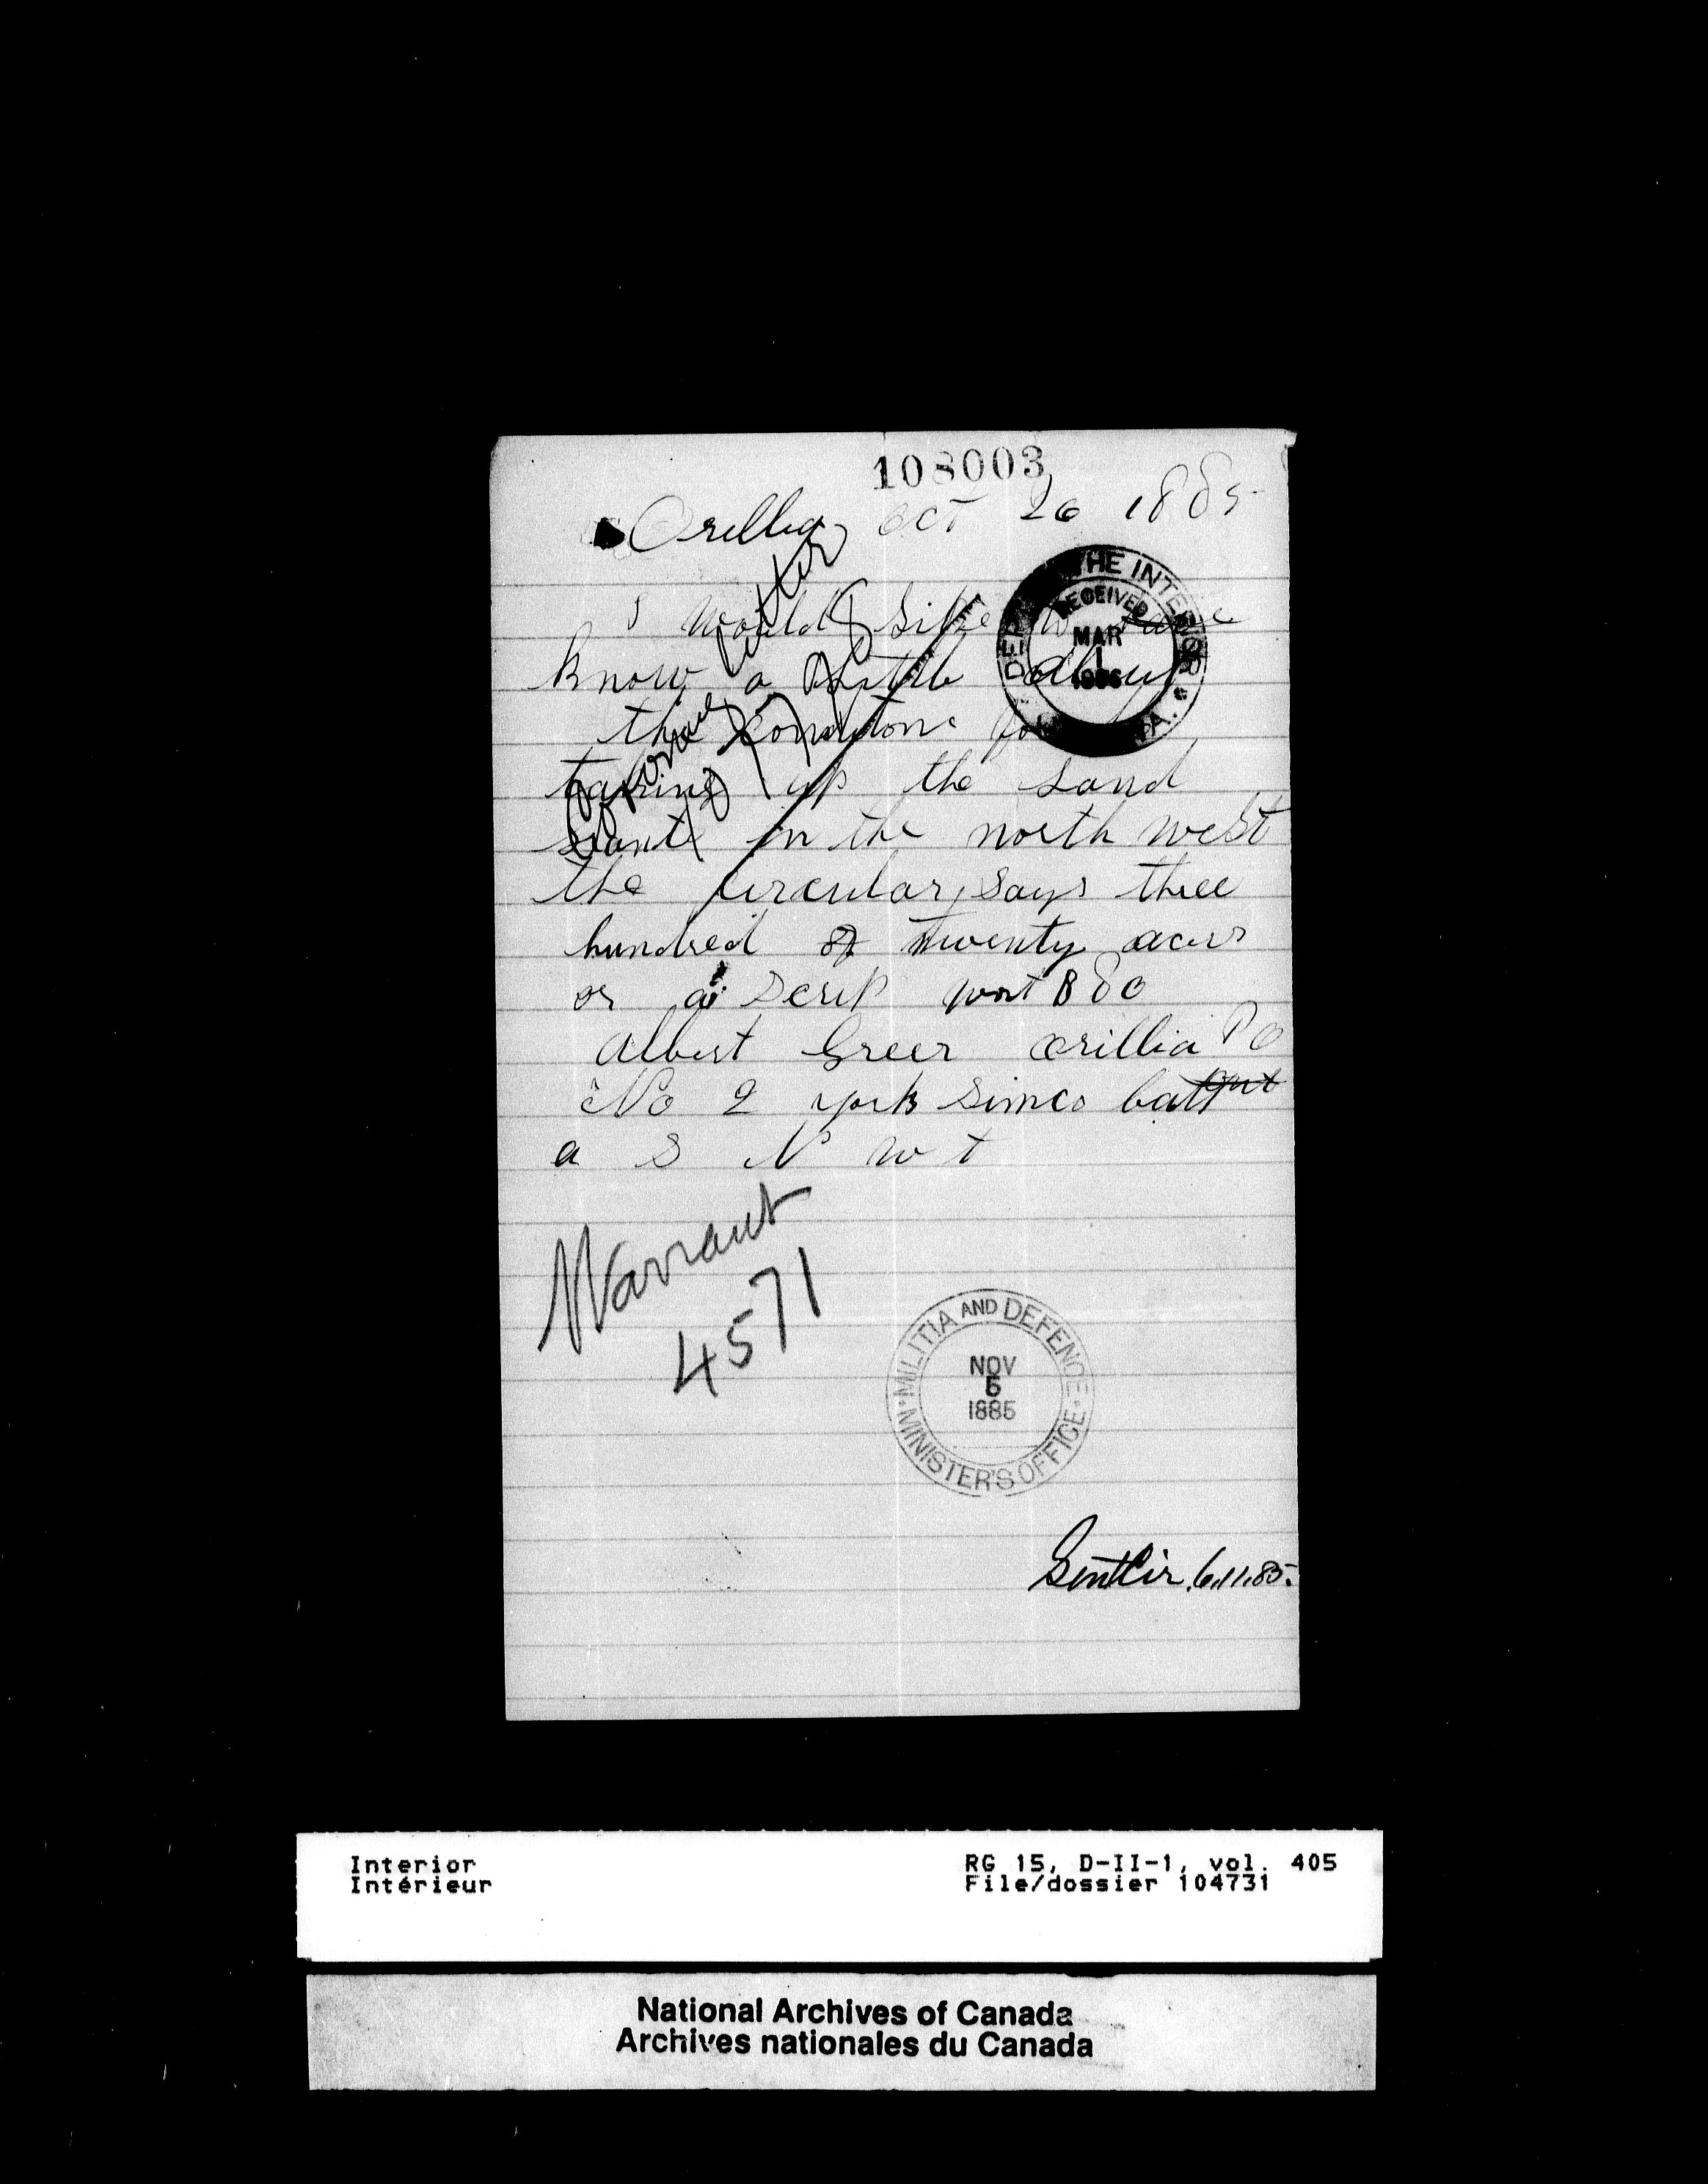 108003
Orillia Oct 26 1885
I would Like to have
know a Little about
the Condtons for
taking up the Land
in the north west
the circular, Says three
hundred of twenty acers
or a Scrip wort 80
Albert Greer orillia PO
No 2 york Simco batt
a S N W t
DEPT THE INTERIOR
RECEIVED
MAR
1
1886
Warrant
4571
MILITIA AND DEFENCE
NOV
5
1885
MINISTER'S OFFICE
Sent Cir. 6.11.85.
Interior
Intérieur
RG 15, D-II-1, vol. 405
File/dossier 104731
National Archives of Canada
Archives nationales du Canada